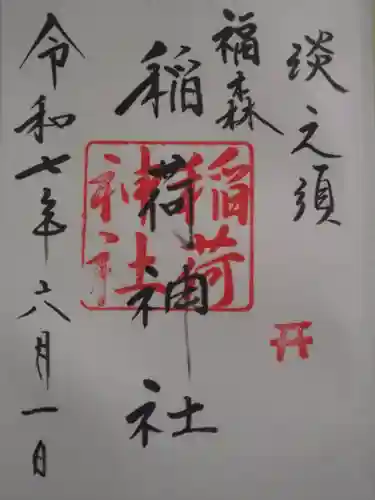 淡之須
福森
稲荷神社
令和七年六月一日
稲荷
神社